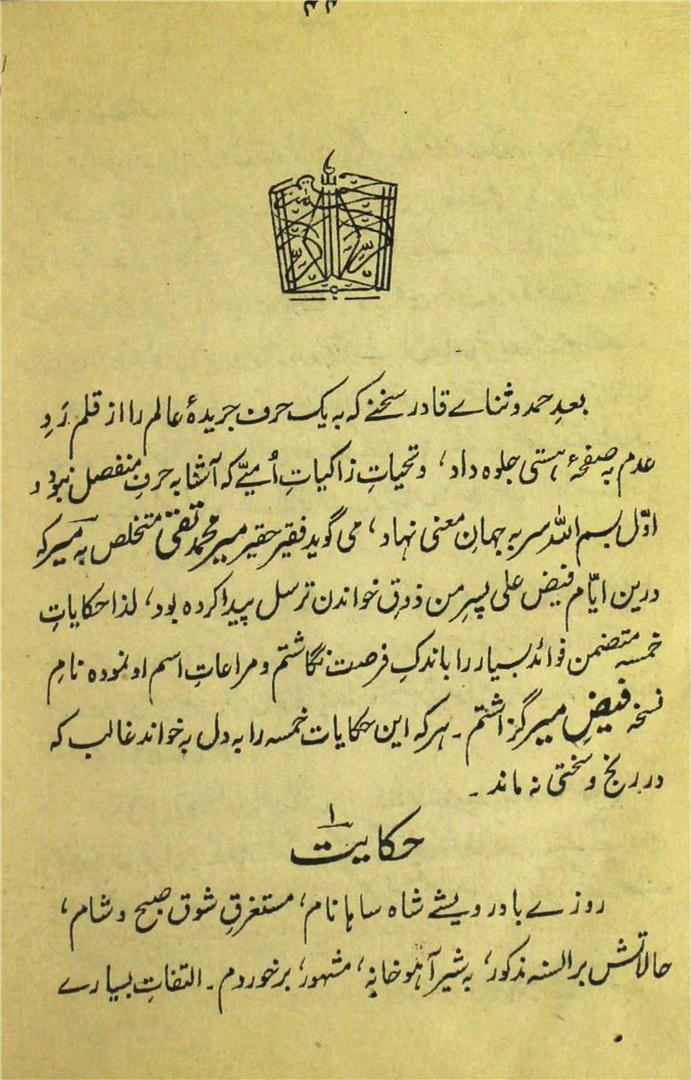 بعدِ حمد و ثناے قادر سخنے کہ بہ یک حرف جریدۂ عالم را از قلم زَدِ
عدم بہ صفحۂ ہستی جلوہ داد، و تحیاتِ زاکیاتِ اُمیّے کہ آشنا بہ حرفِ منفصل نبود و
اوّل بسم اللہ سر بہ جہانِ معنی نہاد، می گوید فقیر حقیر میر محمد تقی متخلص بہ میرؔ کہ
درین ایّام فیض علی پسرِ من ذوقِ خواندن ترسل پیدا کردہ بود، لذا حکایاتِ
خمسہ متضمن فوائد بسیار را باندک فرصت نگاشتم و مراعاتِ اسم او نمودہ نامِ
نسخہ فیضِ میر گزاشتم۔ ہر کہ این حکایات خمسہ را بہ دل بہ خواند غالب کہ
در رنج و سختی نہ ماند۔
حکایت ۱
روزے با درویشے شاہ ساہا نام، مستغرقِ شوق صبح و شام،
حالاتش بر السنہ مذکور، بہ شیر آہو خانہ، مشہور، برخوردم۔ التفاتِ بسیارے